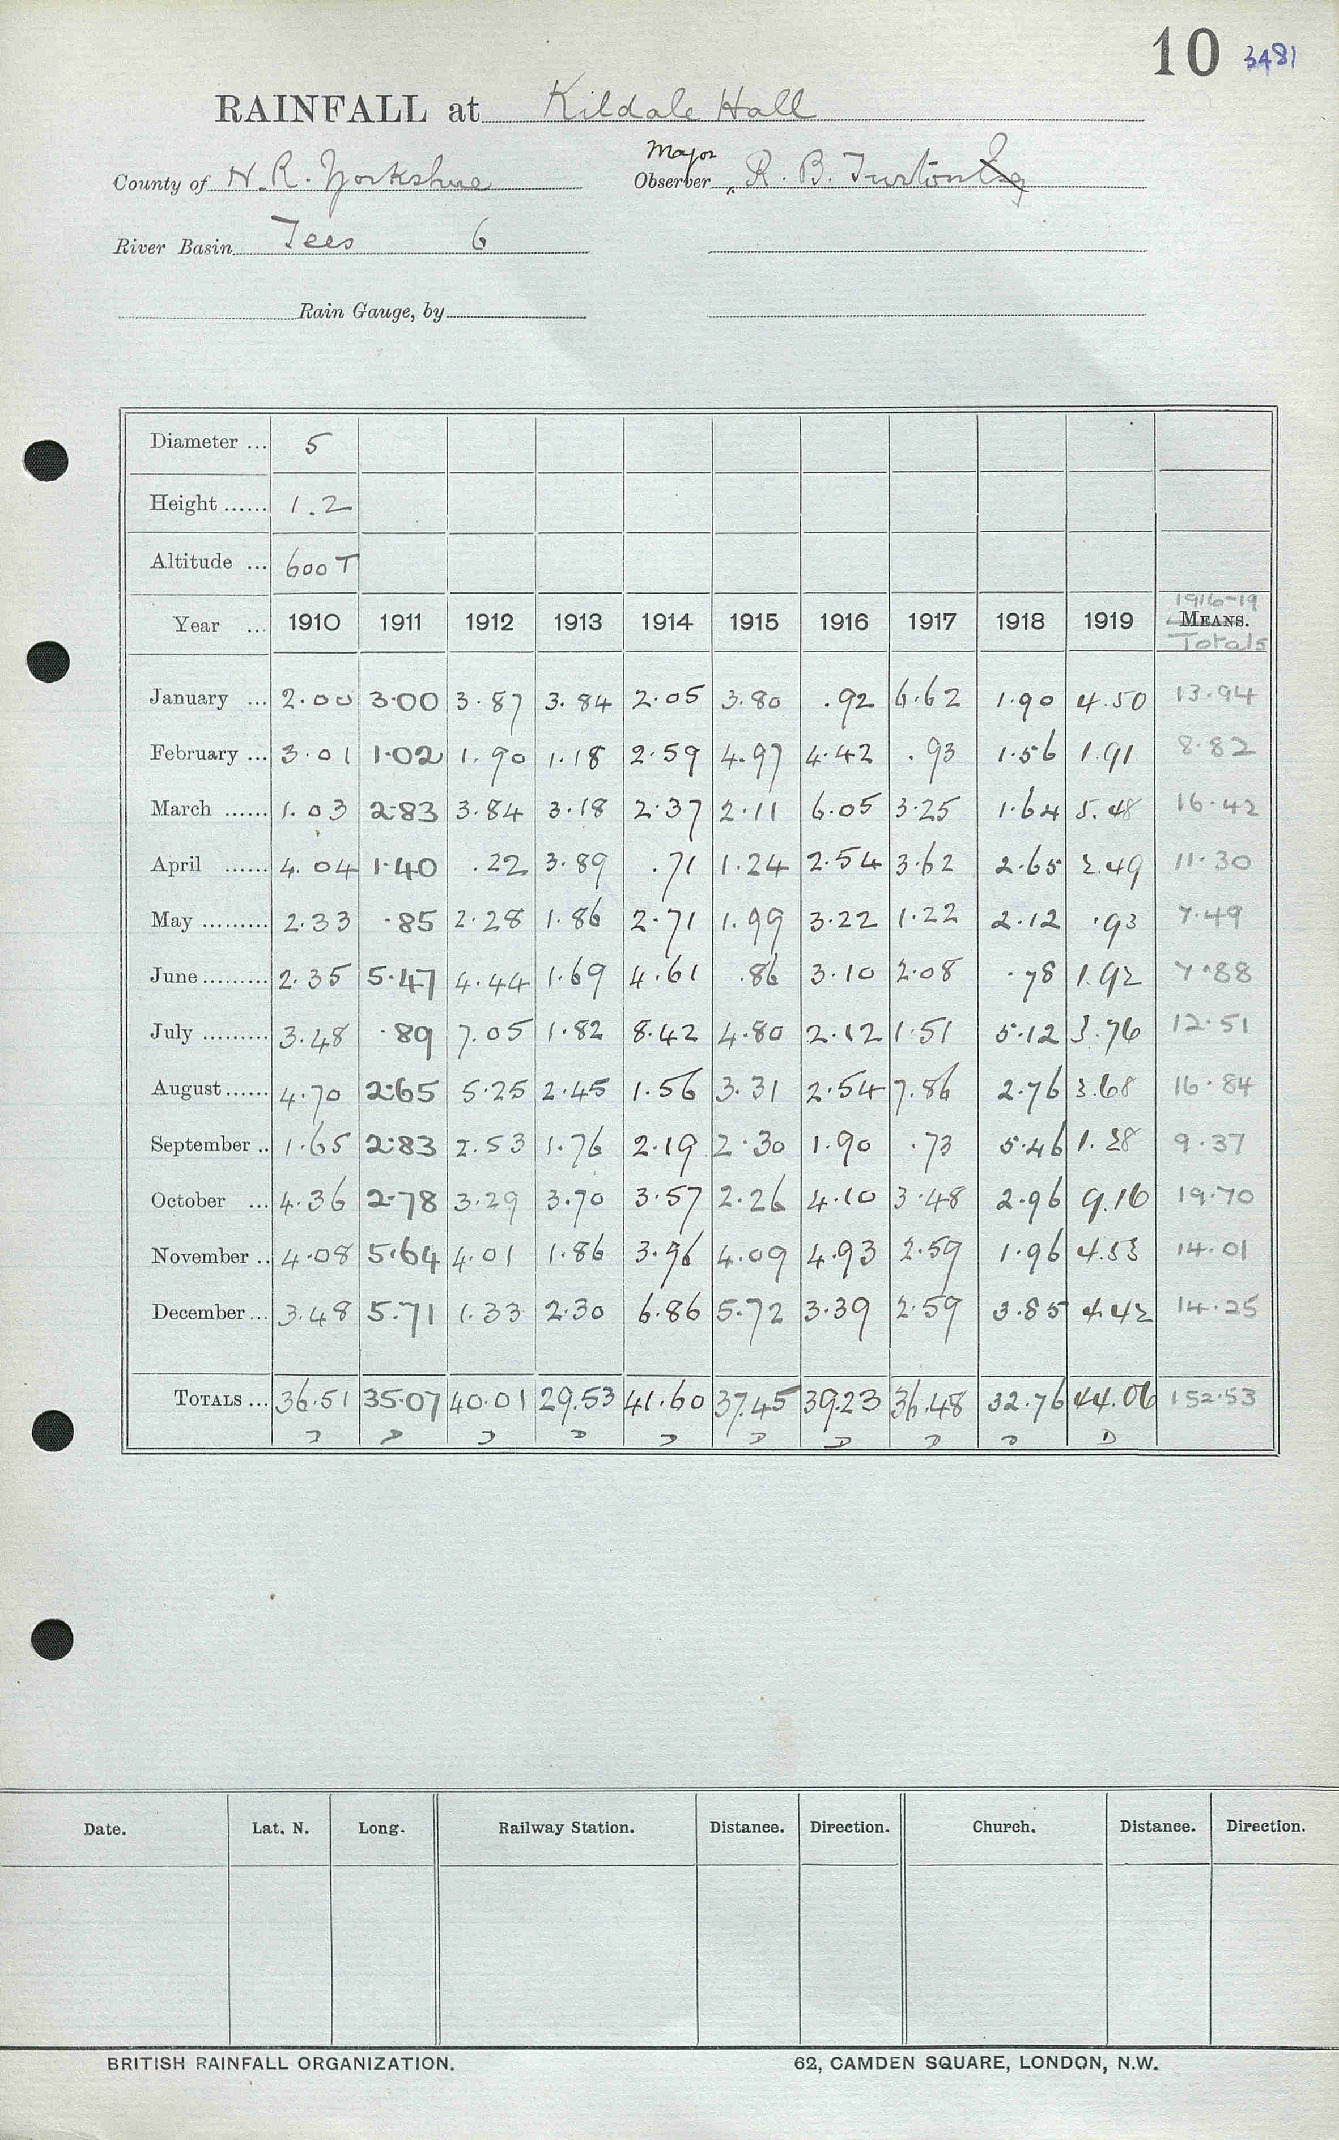 10 3481
RAINFALL at Kildale Hall
County of N. R. Yorkshire Major Observer R. B. Turton Esq
River Basin Tees 6
Rain Gauge, by
Diameter ... 5
Height ...... 1.2
Altitude ... 600 T
Year ... 1910 1911 1912 1913 1914 1915 1916 1917 1918 1919 1916-19 MEANS. Totals
January ... 2.00 3.00 3.87 3.84 2.05 3.80 .92 6.62 1.90 4.50 13.94
February ... 3.01 1.02 1.90 1.18 2.59 4.97 4.42 .93 1.56 1.91 8.82
March ...... 1.03 2.83 3.84 3.18 2.37 2.11 6.05 3.25 1.64 5.48 16.42
April ...... 4.04 1.40 .22 3.89 .71 1.24 2.54 3.62 2.65 2.49 11.30
May ......... 2.33 .85 2.28 1.86 2.71 1.99 3.22 1.22 2.12 .93 7.49
June ......... 2.35 5.47 4.44 1.69 4.61 .86 3.10 2.08 .78 1.92 7.88
July ......... 3.48 .89 7.05 1.82 8.42 4.80 2.12 1.51 5.12 3.76 12.51
August ...... 4.70 2.65 5.25 2.45 1.56 3.31 2.54 7.86 2.76 3.68 16.84
September .. 1.65 2.83 2.53 1.76 2.19 2.30 1.90 .73 5.46 1.28 9.37
October ... 4.36 2.78 3.29 3.70 3.57 2.26 4.10 3.48 2.96 9.16 19.70
November .. 4.08 5.64 4.01 1.86 3.96 4.09 4.93 2.59 1.96 4.53 14.01
December ... 3.48 5.71 1.33 2.30 6.86 5.72 3.39 2.59 3.85 4.42 14.25
TOTALS ... 36.51 35.07 40.01 29.53 41.60 37.45 39.23 36.48 32.76 44.06 152.53
D D D D D D D D D D
Date. Lat. N. Long. Railway Station. Distance. Direction. Church. Distance. Direction.
BRITISH RAINFALL ORGANIZATION. 62, CAMDEN SQUARE, LONDON, N.W.